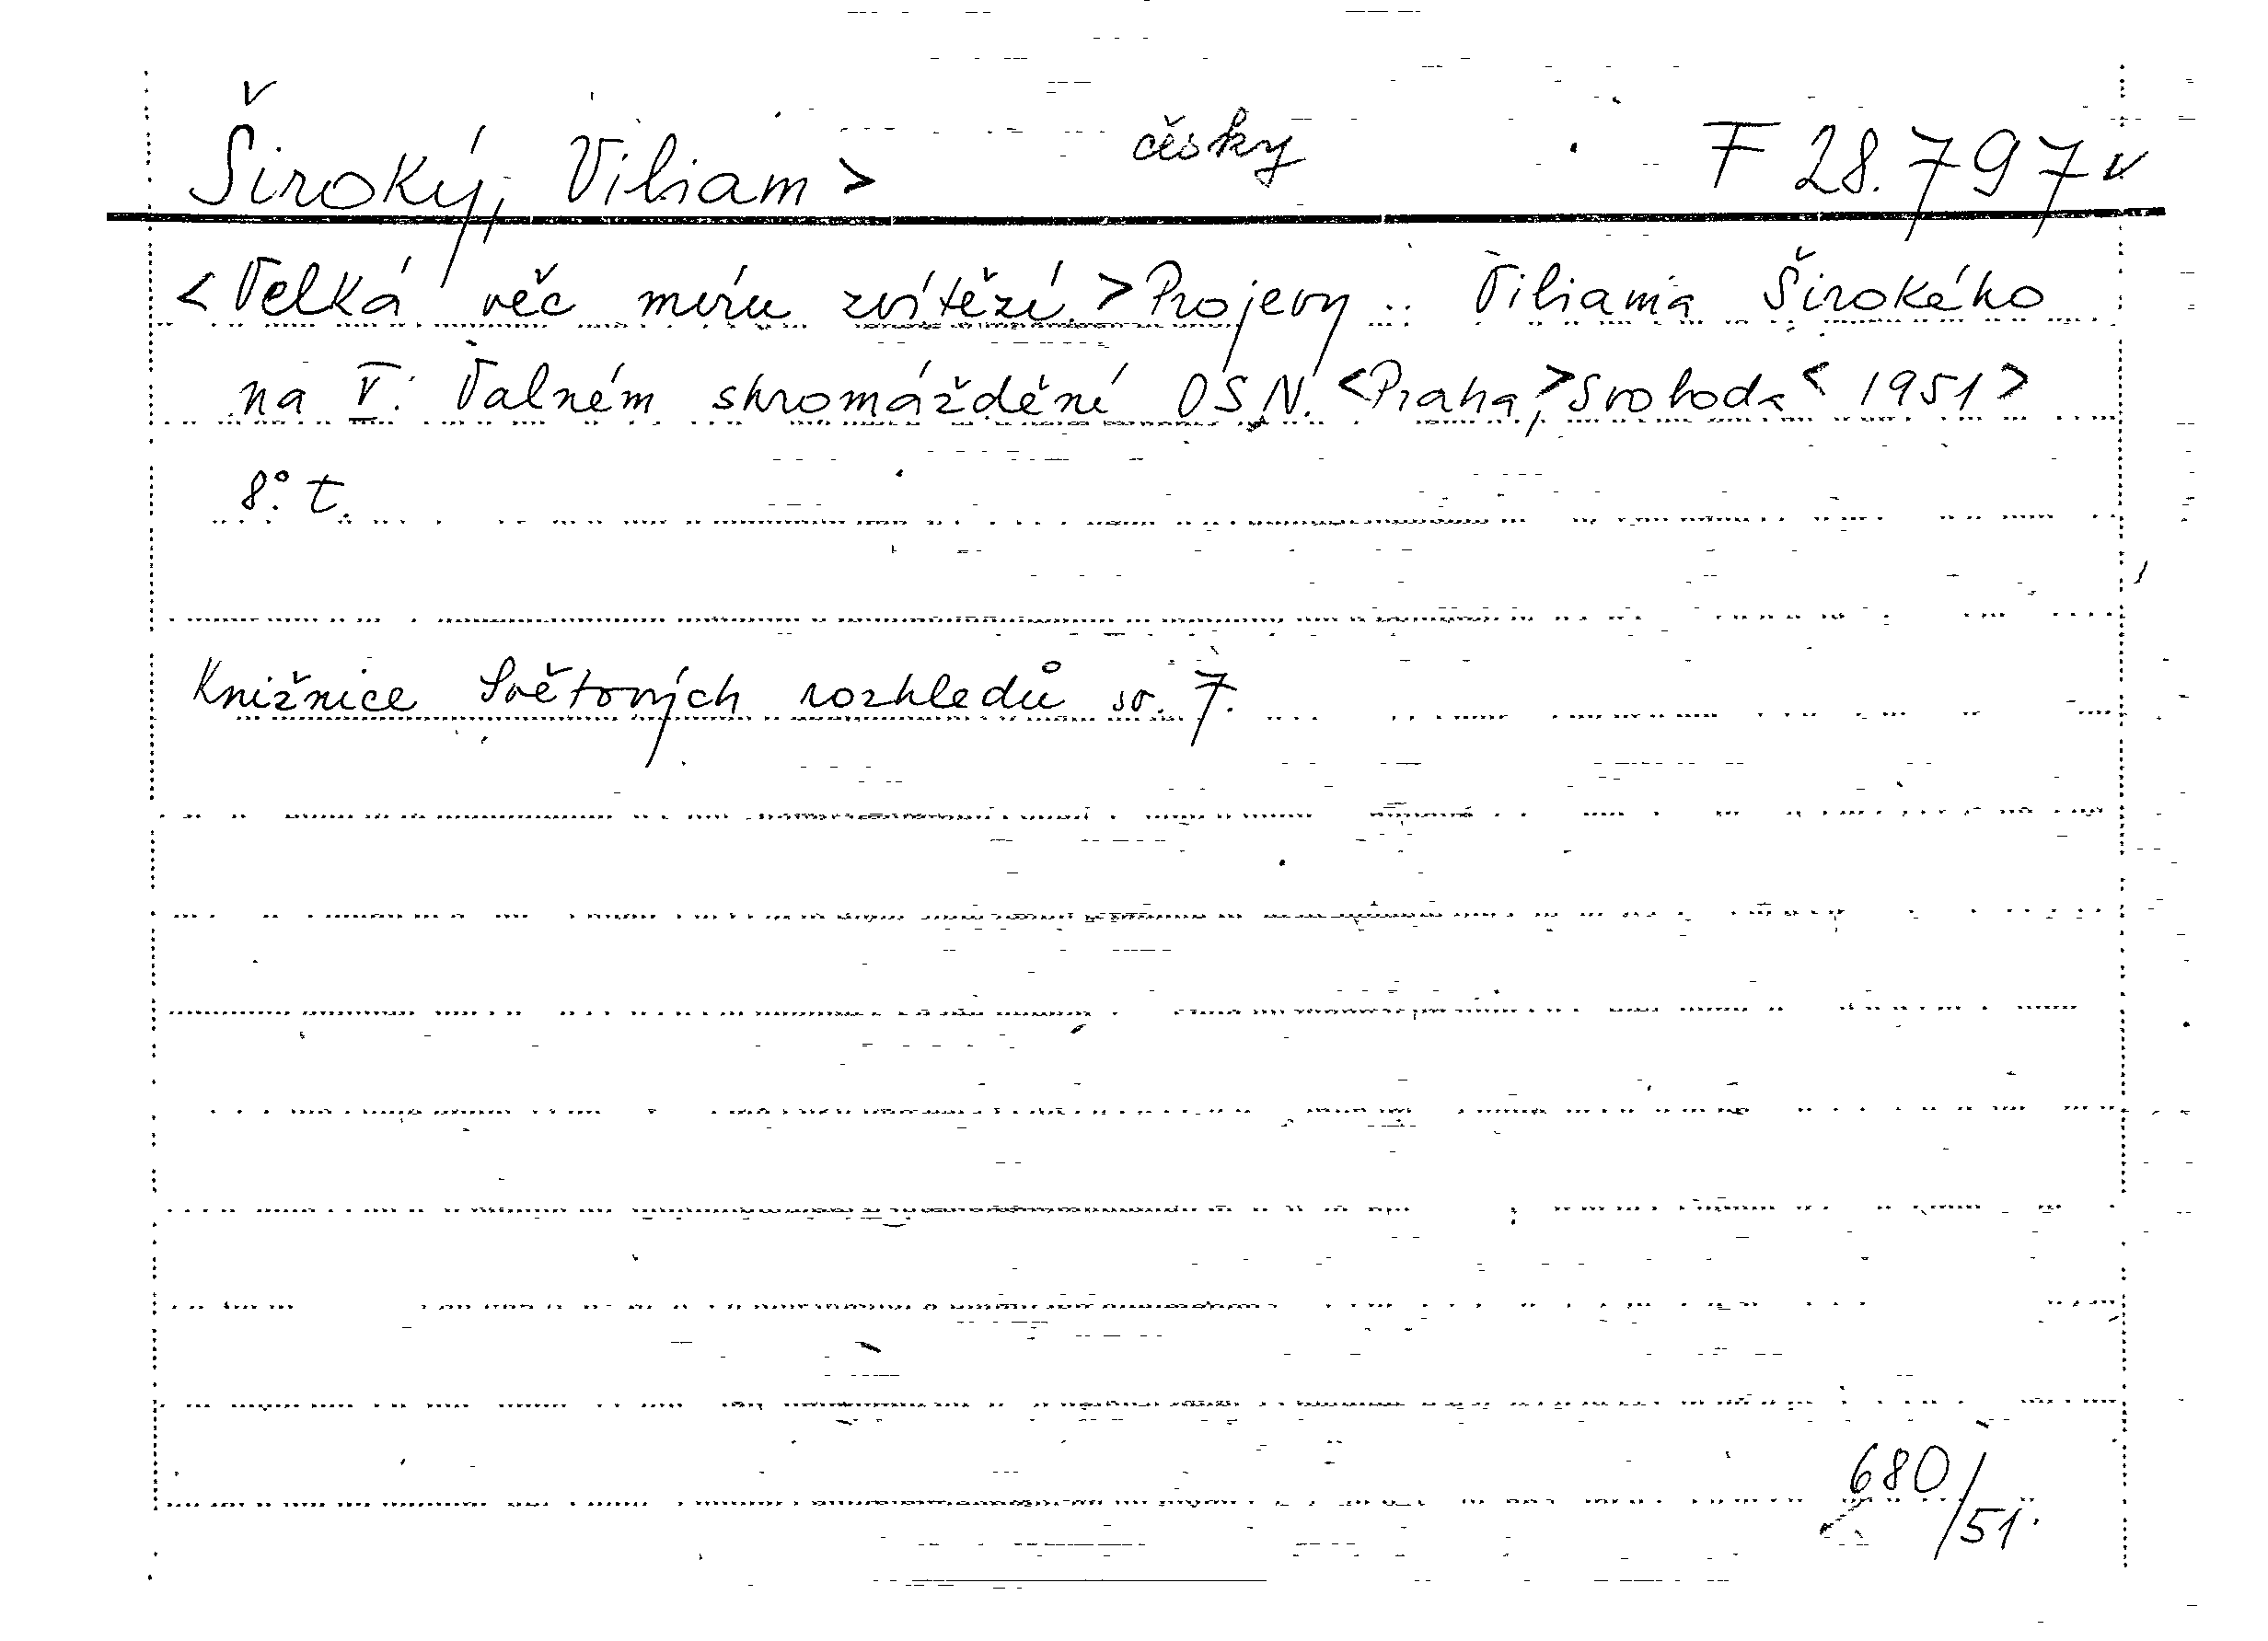 Široký, Viliam > česky F 28.797 v
< Velká věc míru zvítězí. > Projevy .. Viliama Širokého
na V. Valném shromáždění OSN. < Praha, > Svoboda < 1951 >
8°. t.
Knižnice Světových rozhledů sv. 7.
680/51.